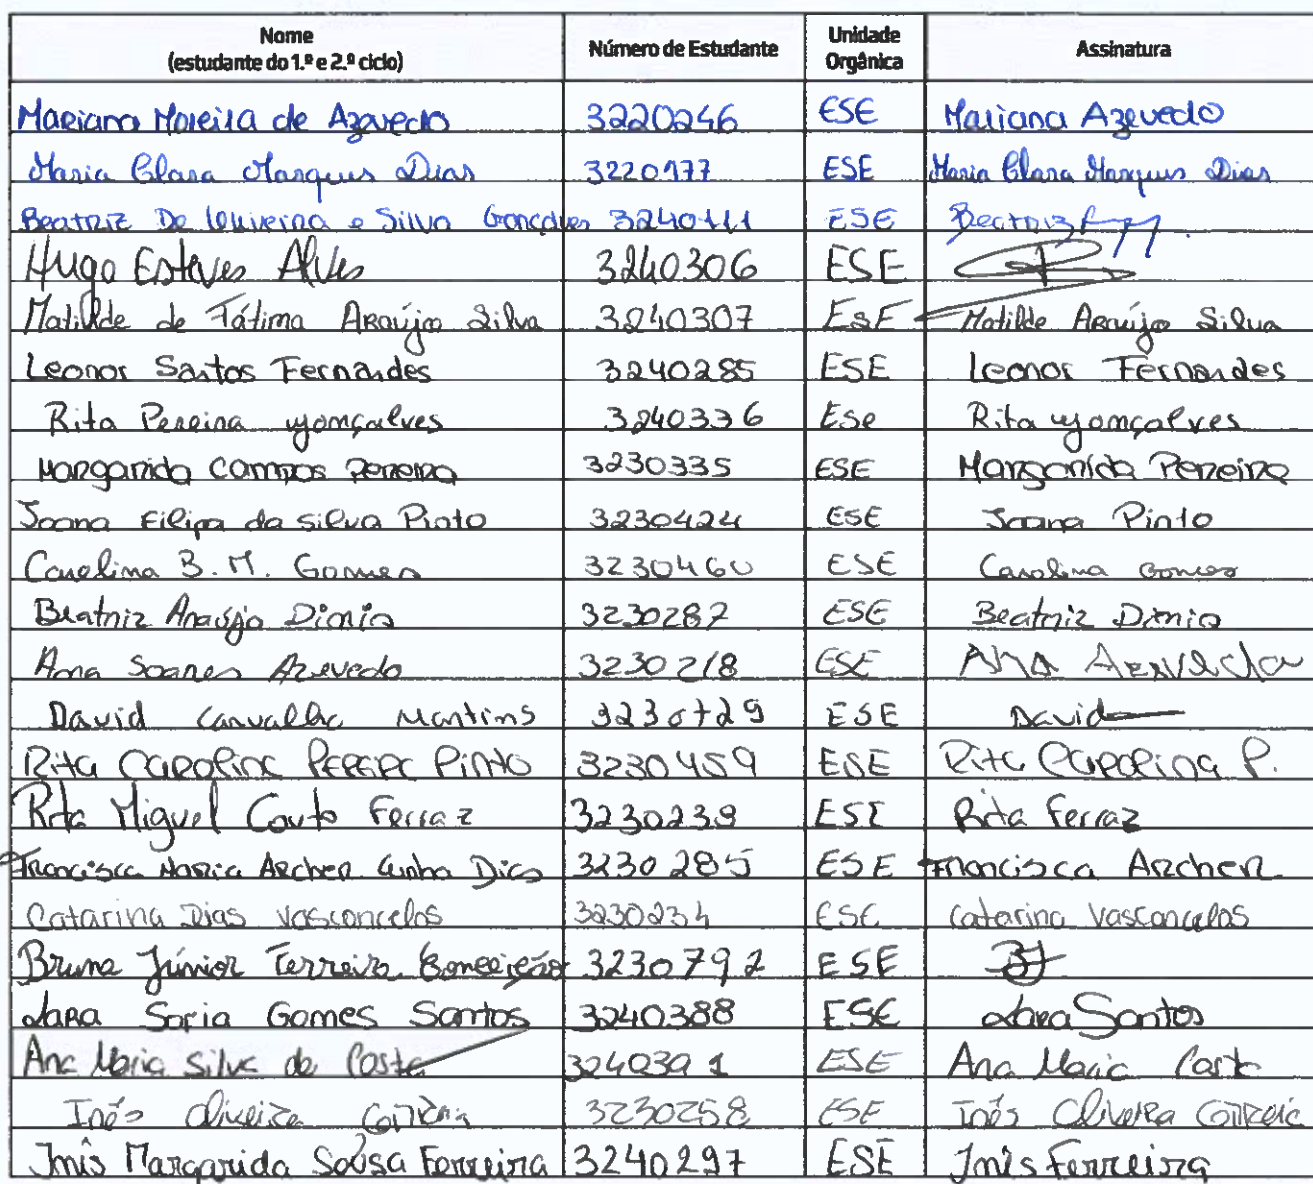 Nome (estudante do 1.º e 2.º ciclo) Número de Estudante Unidade Orgânica Assinatura
Mariana Moreira de Azevedo 3220246 ESE Mariana Azevedo
Maria Clara Marques Dias 3220177 ESE Maria Clara Marques Dias
Beatriz De Oliveira e Silva Gonçalves 3240111 ESE Beatriz
Hugo Esteves Alves 3240306 ESE
Matilde de Fátima Araújo Silva 3240307 ESE Matilde Araújo Silva
Leonor Santos Fernandes 3240285 ESE Leonor Fernandes
Rita Pereira Gonçalves 3240336 Ese Rita Gonçalves
Margarida Campos Pereira 3230335 ESE Margarida Pereira
Joana Filipa da Silva Pinto 3230424 ESE Joana Pinto
Carolina B. M. Gomes 3230460 ESE Carolina Gomes
Beatriz Araújo Dinis 3230287 ESE Beatriz Dinis
Ana Soares Azevedo 3230218 ESE Ana Azevedo
David Carvalho Martins 3230729 ESE David
Rita Carolina Pereira Pinto 3230459 ESE Rita Carolina P.
Rita Miguel Couto Ferraz 3230239 ESE Rita Ferraz
Francisca Maria Archer Cunha Dias 3230285 ESE Francisca Archer
Catarina Dias Vasconcelos 3230234 ESE Catarina Vasconcelos
Bruna Júnior Ferreira Conceição 3230792 ESE BJ
Lara Sofia Gomes Santos 3240388 ESE Lara Santos
Ana Maria Silva da Costa 3240391 ESE Ana Maria Costa
Inês Oliveira 3230258 ESE Inês Oliveira
Inês Margarida Sousa Ferreira 3240297 ESE Inês Ferreira